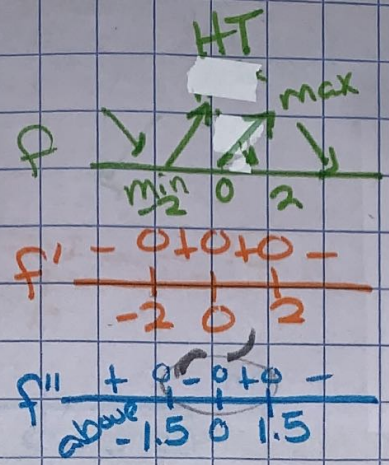 HT
max
f
min
-2 0 2
f' - 0 + 0 + 0 -
-2 0 2
f'' + 0 - 0 + 0 -
above -1.5 0 1.5